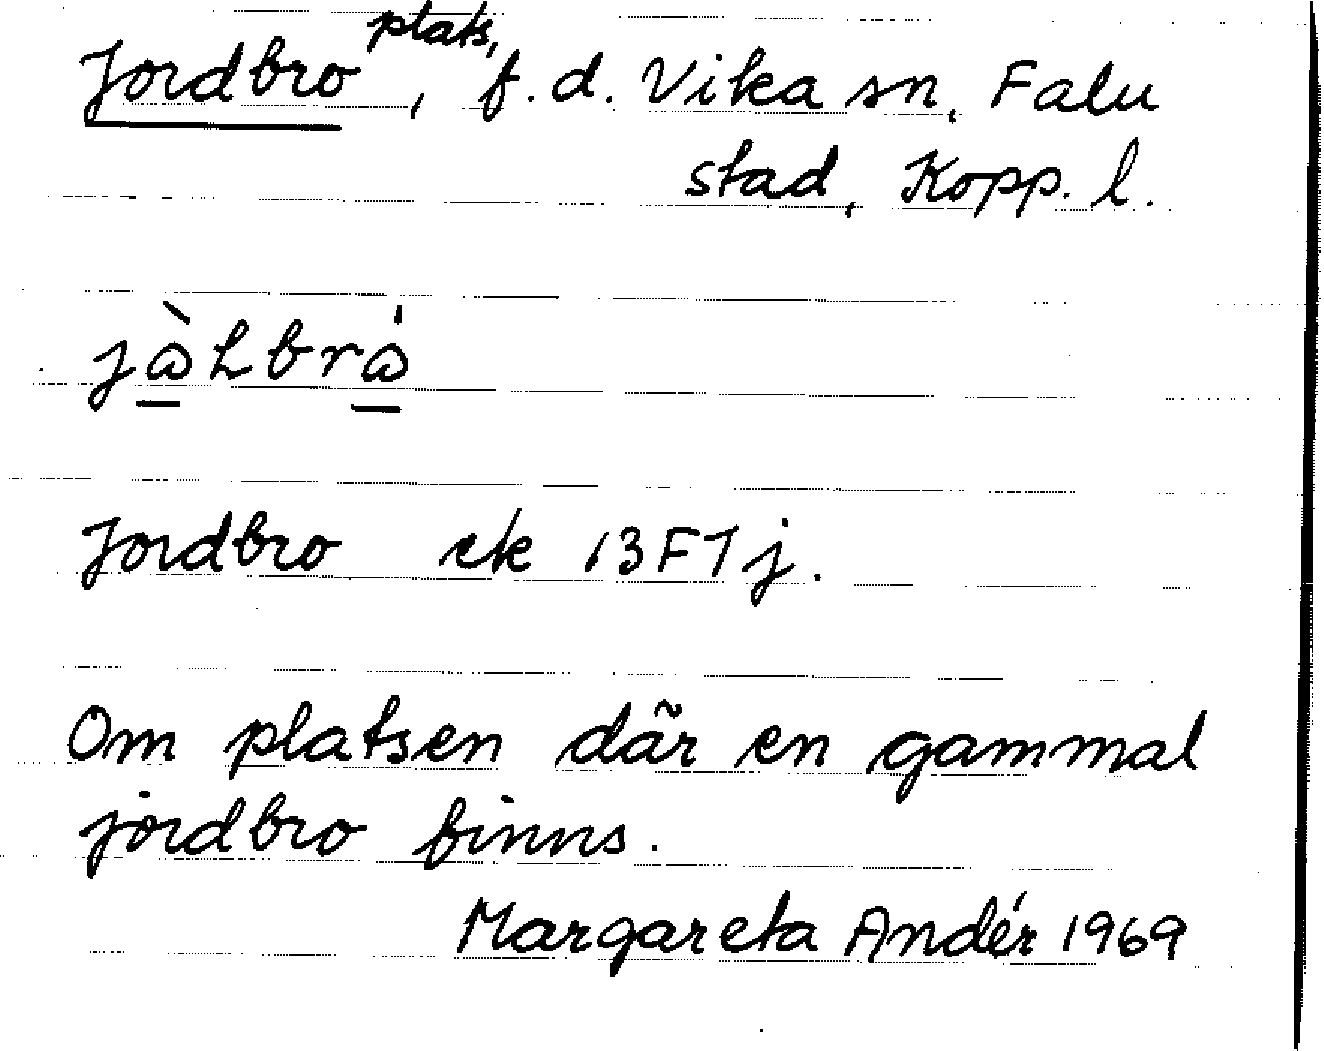 Jordbro, plats, f.d. Vika sn, Falu
stad, Kopp. l.
Jordbro ek 13F7j.
Om platsen där en gammal
jordbro finns.
Margareta Andér 1969